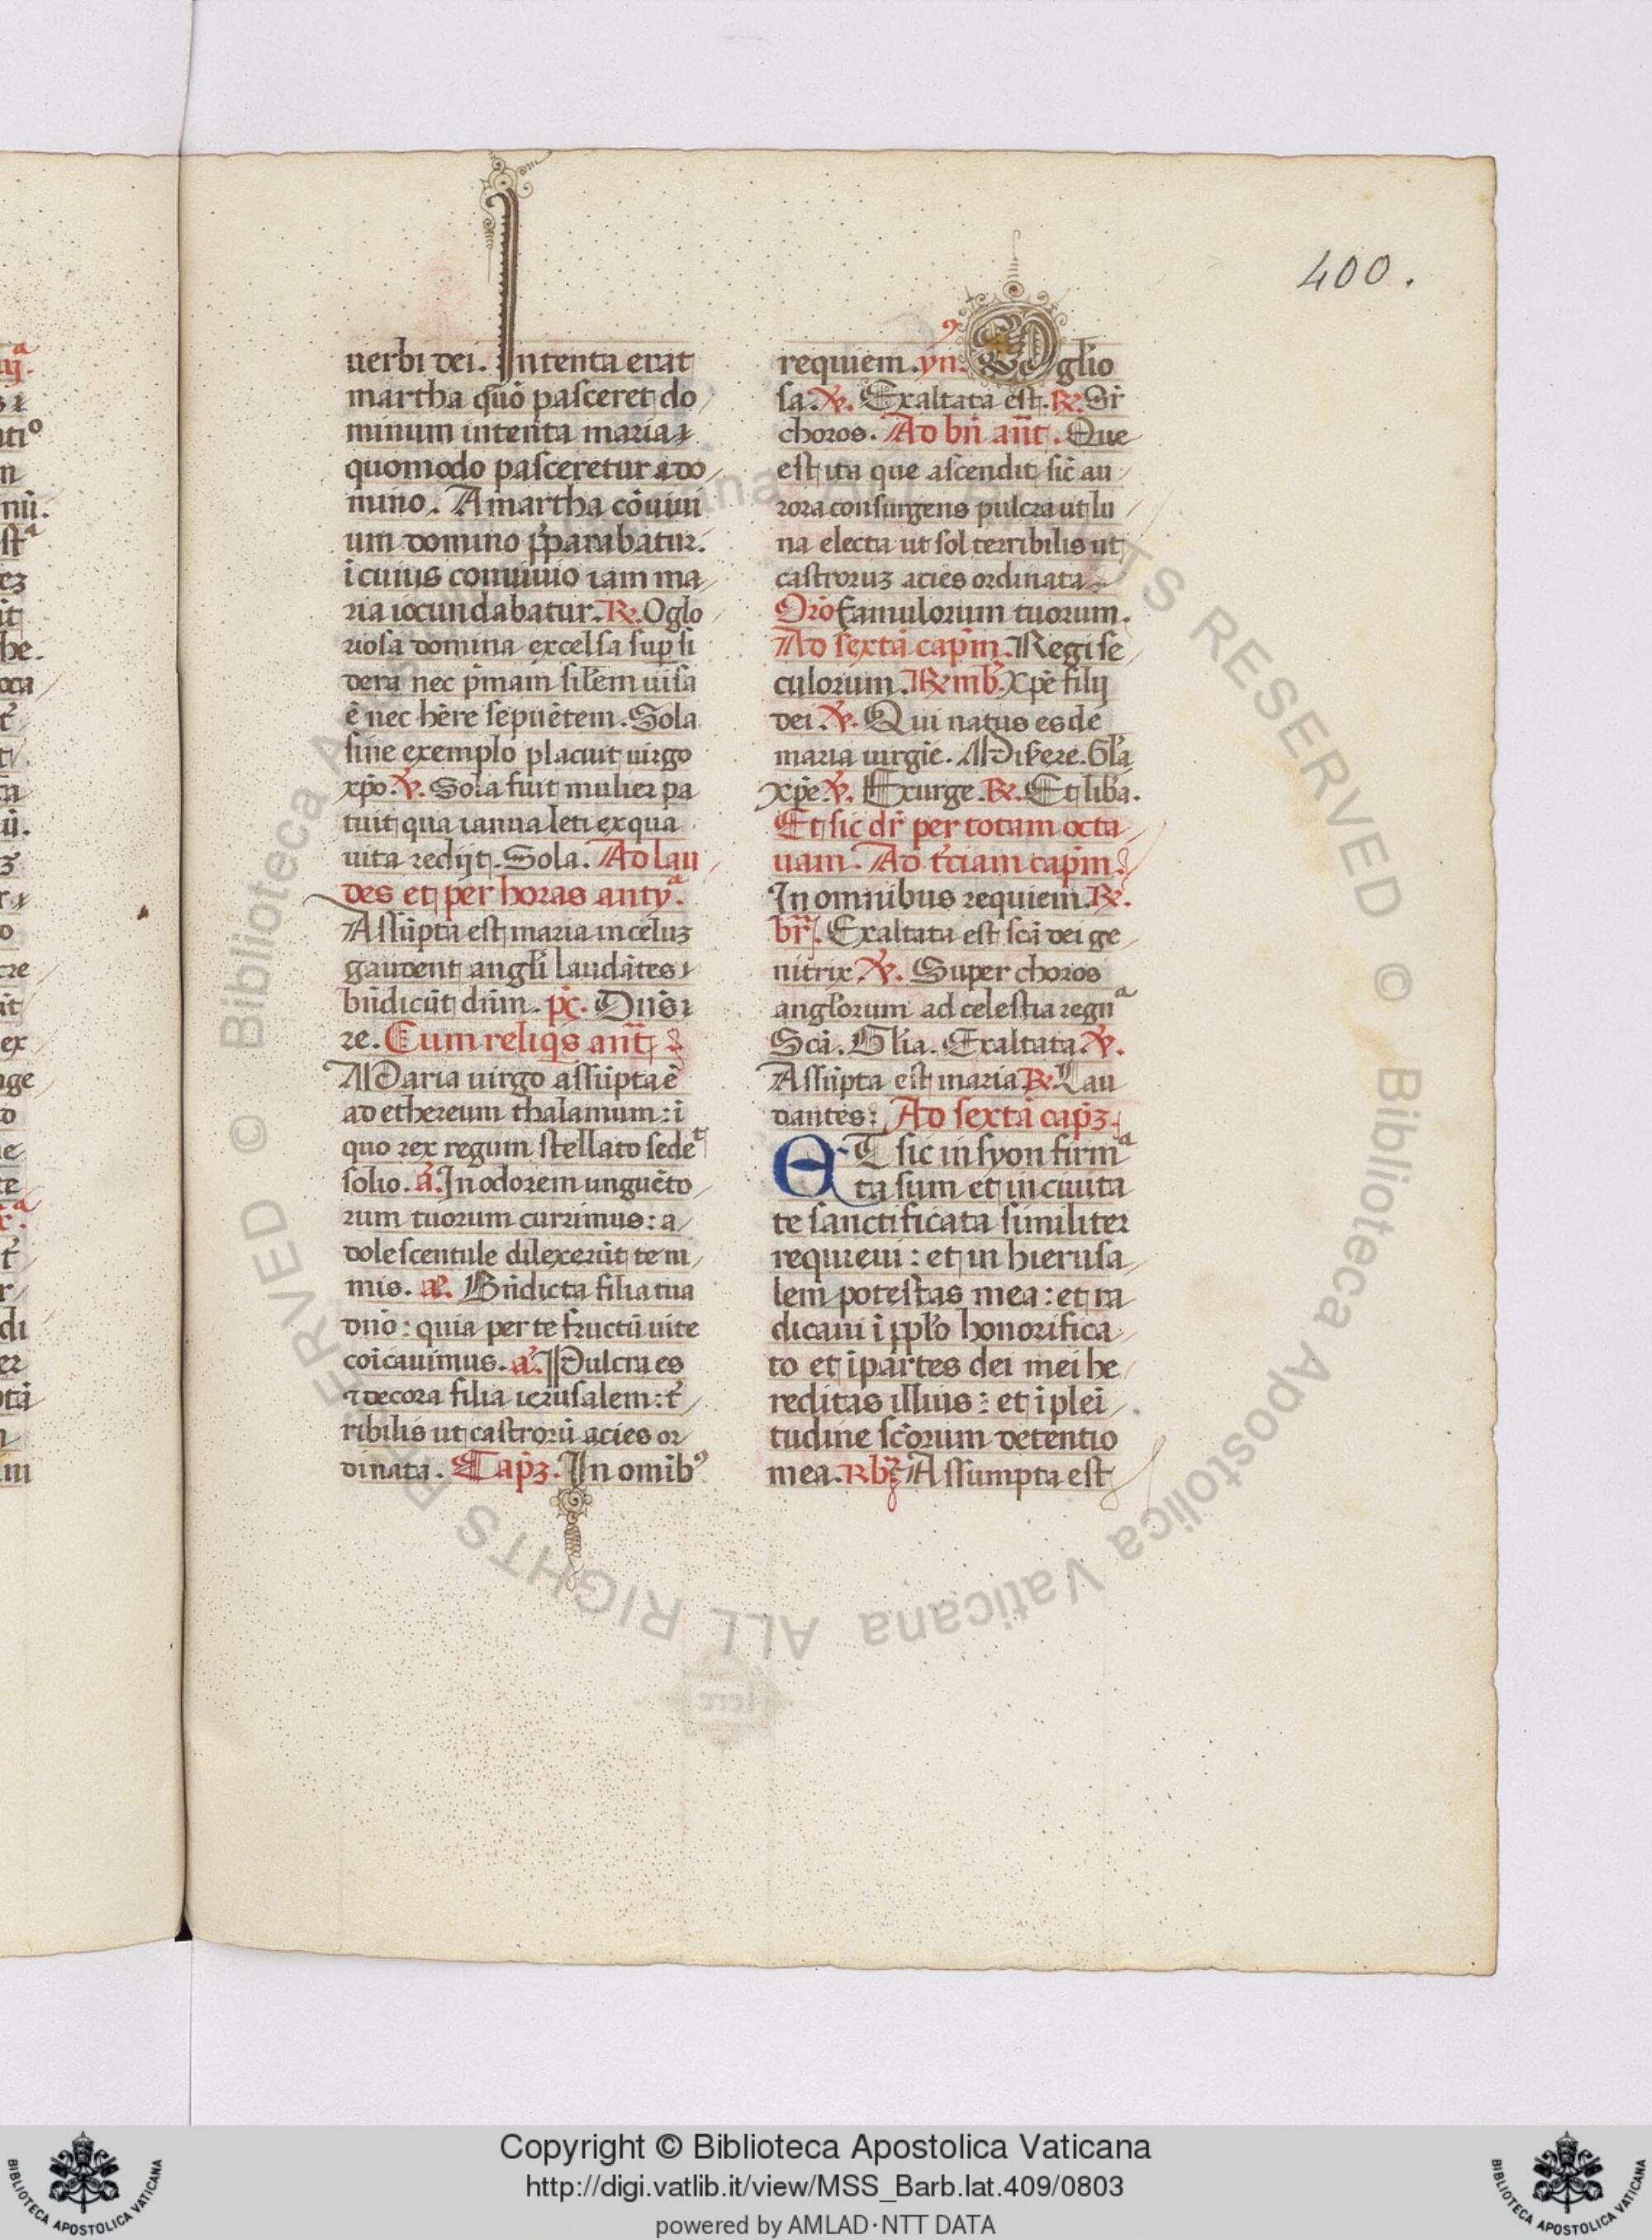 400.
uerbi dei. Intenta erat
martha quō pasceret do
minum intenta maria
quomodo pasceretur a do
mino. A martha cōuiui
um domino p̄parabatur.
ī cuius conuiuio iam ma
ria iocundabatur. R. O glo
riosa domina excelsa sup si
dera nec p̄mam sil̄em uisa
ē nec hēre sequētem. Sola
sine exemplo placuit uirgo
xp̄o. V. Sola fuit mulier pa
tuit qua ianua leti ex qua
uita redijt. Sola. Ad lau
des et per horas anty.ᵃ
Assūpta est maria in celuꝫ
gaudent angl̄i laudātes
bn̄dicūt dūm. pʹ. Dn̄s r
re. Cum reliqs an̄t
Maria uirgo assūpta ē
ad ethereum thalamum: ī
quo rex regum stellato sedeᵗ
solio. a. In odorem unguēto
rum tuorum currimus: a
dolescentule dilexerūt te ni
mis. a. Bn̄dicta filia tua
dn̄o: quia per te fructū uite
cōicauimus. a. Pulcra es
⁊ decora filia ierusalem: t̄
ribilis ut castrorū acies or
dinata. Cap̄ꝫ. In omibꝰ
requiem. yn. O gl̄io
sa. V. Exaltata est. R. Sr̄
choros. Ad bn̄ an̄t. Que
est ita que ascendit sic̄ au
rora consurgens pulcra ut lu
na electa ut sol terribilis ut
castroruꝫ acies ordinata
Orō famulorum tuorum.
Ad sextā cap̄m. Regi se
culorum. R. mb. Xp̄e filij
dei. V. Qui natus es de
maria uirgīe. Miserere. Gl̄a
Xp̄e. V. Exurge. R. Et lib̄a.
Et sic dr̄ per totam octa
uam. Ad t̄ciam cap̄m.
In omnibus requiem. R.
br̄. Exaltata est scā dei ge
nitrix. V. Super choros
angl̄orum ad celestia regnᵃ
Scā. Gl̄ia. Exaltata. V.
Assūpta est maria. R. Lau
dantes: Ad sextā cap̄ꝫ.
ET sic in syon firmᵃ
ta sum et in ciuita
te sanctificata similiter
requieui: et in hierusa
lem potestas mea: et ra
dicaui ī pp̄l̄o honorifica
to et ī partes dei mei he
reditas illius: et ī plei
tudine scōrum detentio
mea. Rbꝫ Assumpta est
© Biblioteca Apostolica Vaticana ALL RIGHTS RESERVED
Copyright © Biblioteca Apostolica Vaticana
http://digi.vatlib.it/view/MSS_Barb.lat.409/0803
powered by AMLAD·NTT DATA
BIBLIOTECA APOSTOLICA VATICANA
BIBLIOTECA APOSTOLICA VATICANA